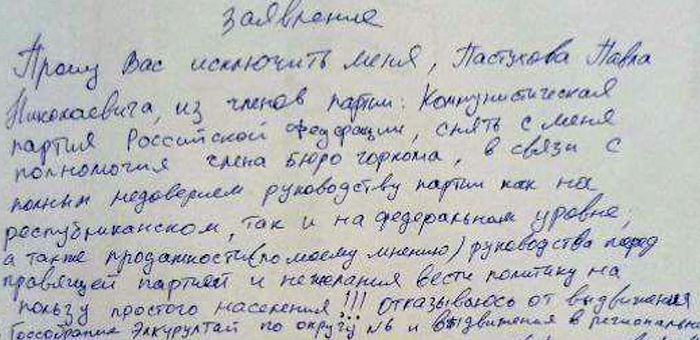 Заявление
Прошу Вас исключить меня, Пастухова Павла
Николаевича, из членов партии: Коммунистическая
партия Российской Федерации, снять с меня
полномочия члена бюро горкома, в связи с
полным недоверием руководству партии как на
республиканском, так и на федеральном уровне,
а также продажности (по моему мнению) руководства перед
правящей партией и нежелания вести политику на
пользу простого населения!!! Отказываюсь от выдвижения
Госсобрание Элкурултай по округу №6 и выдвижения в региональн